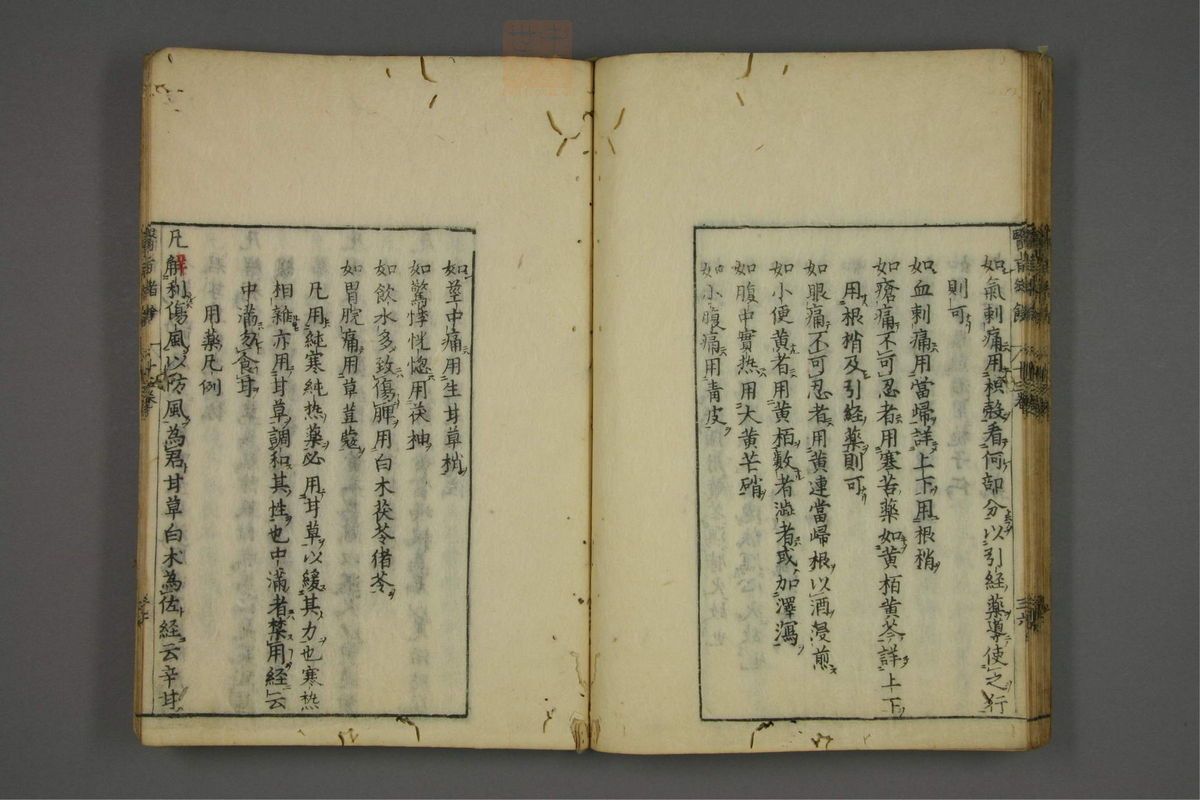 如氣刺痛用枳殼看何部分以引經藥導使之行
則可
如血刺痛用當歸詳上下用根梢
如瘡痛不可忍者用寒苦藥如黄栢黄芩詳上下
用根梢及引經藥則可
如眼痛不可忍者用黄連當歸根以酒浸煎
如小便黄者用黄栢數者澁者或加澤瀉
如腹中實热用大黄芒硝
如小腹痛用青皮
如莖中痛用生甘草梢
如驚悸恍惚用茯神
如飲水多致傷脾用白木茯苓猪苓
如胃脘痛用草荳蔻
凡用純寒純热藥必用甘草以緩其力也寒热
相雜亦用甘草調和其性也中滿者禁用經云
中滿勿食甘
用藥凡例
凡解利傷風以防風為君甘草白木為佐經云辛甘